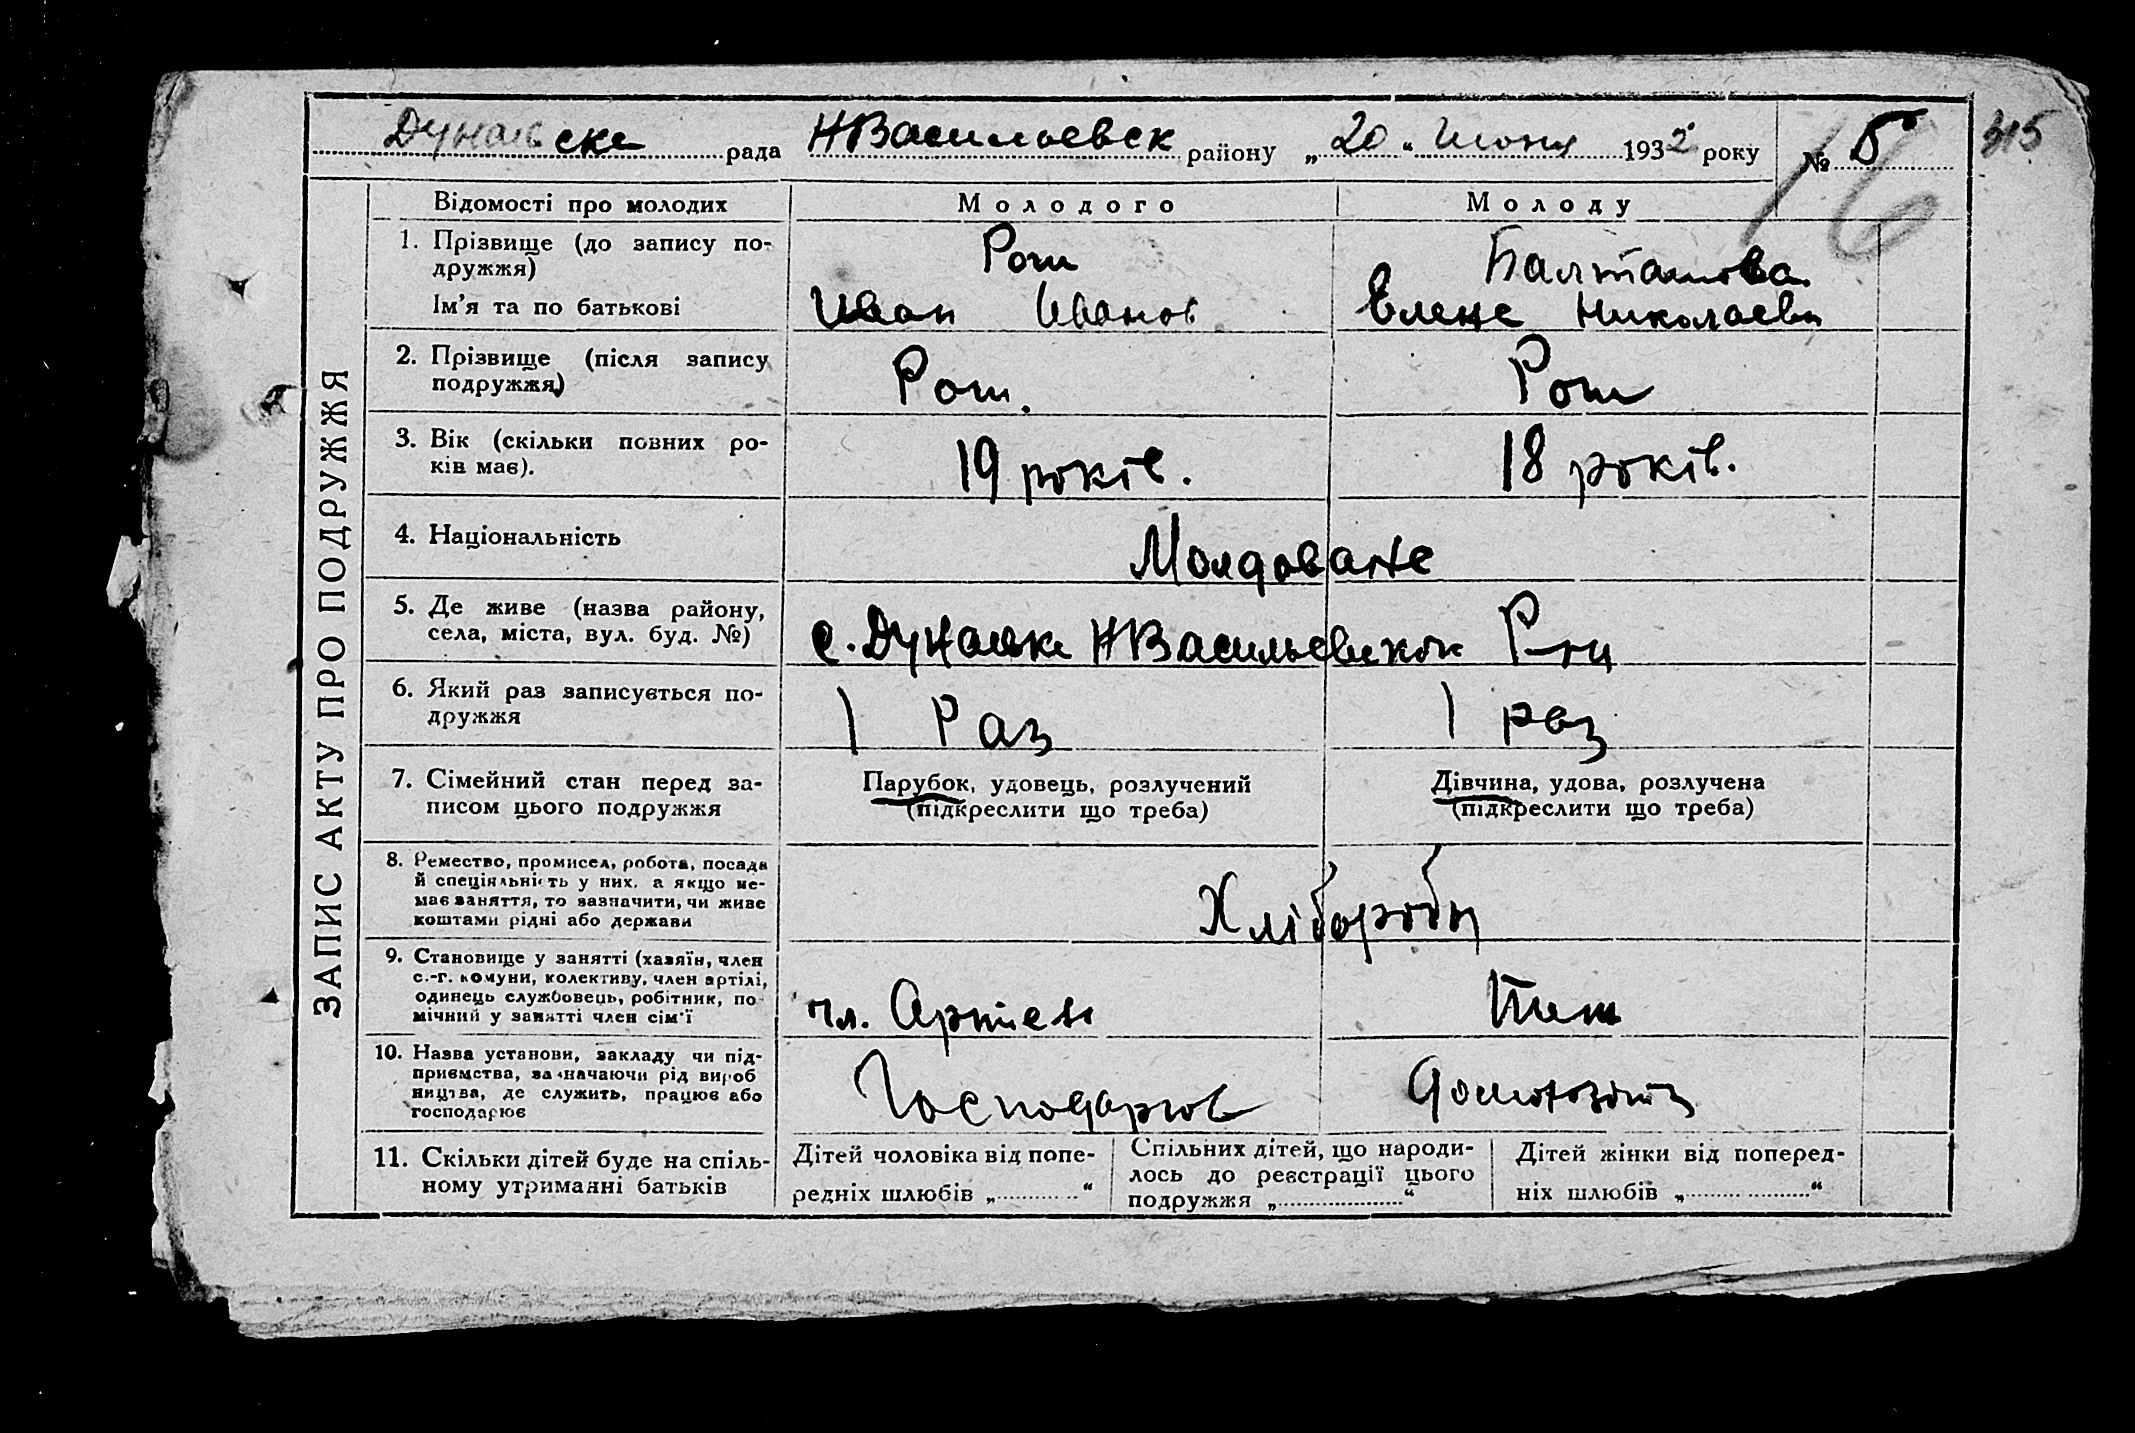 Дунаевска рада НВасильевск району „20“ июня 1932 року № 5
315
16
ЗАПИС АКТУ ПРО ПОДРУЖЖЯ
Відомості про молодих Молодого Молоду
1. Прізвище (до запису по- Рош Балташова
дружжя)
Ім'я та по батькові Иван Иванов Елена Николаевн
2. Прізвище (після запису Рош. Рош
подружжя)
3. Вік (скільки повних ро- 19 років. 18 років.
ків має).
4. Національність Молдоване
5. Де живе (назва району, с. Дунаевка НВасильевском Р-ну
села, міста, вул. буд. №)
6. Який раз записується по- 1 Раз 1 раз
дружжя
7. Сімейний стан перед за- Парубок, удовець, розлучений Дівчина, удова, розлучена
писом цього подружжя (підкреслити що треба) (підкреслити що треба)
8. Ремество, промисел, робота, посада
й спеціяльність у них, а якщо не-
має заняття, то зазначити, чи живе Хлібороби
коштами рідні або держави
9. Становище у занятті (хазяїн, член
с.-г. комуни, колективу, член артілі,
одинець службовець, робітник, по- чл. Артели
мічний у занятті член сім'ї
10. Назва установи, закладу чи під-
приємства, зазначаючи рід вироб
ництва, де служить, працює або Господарюв
господарює
11. Скільки дітей буде на спіль- Дітей чоловіка від попе- Спільних дітей, що народи- Дітей жінки від поперед-
ному утриманні батьків редніх шлюбів „ “ лось до реєстрації цього подружжя „ “ ніх шлюбів „ “